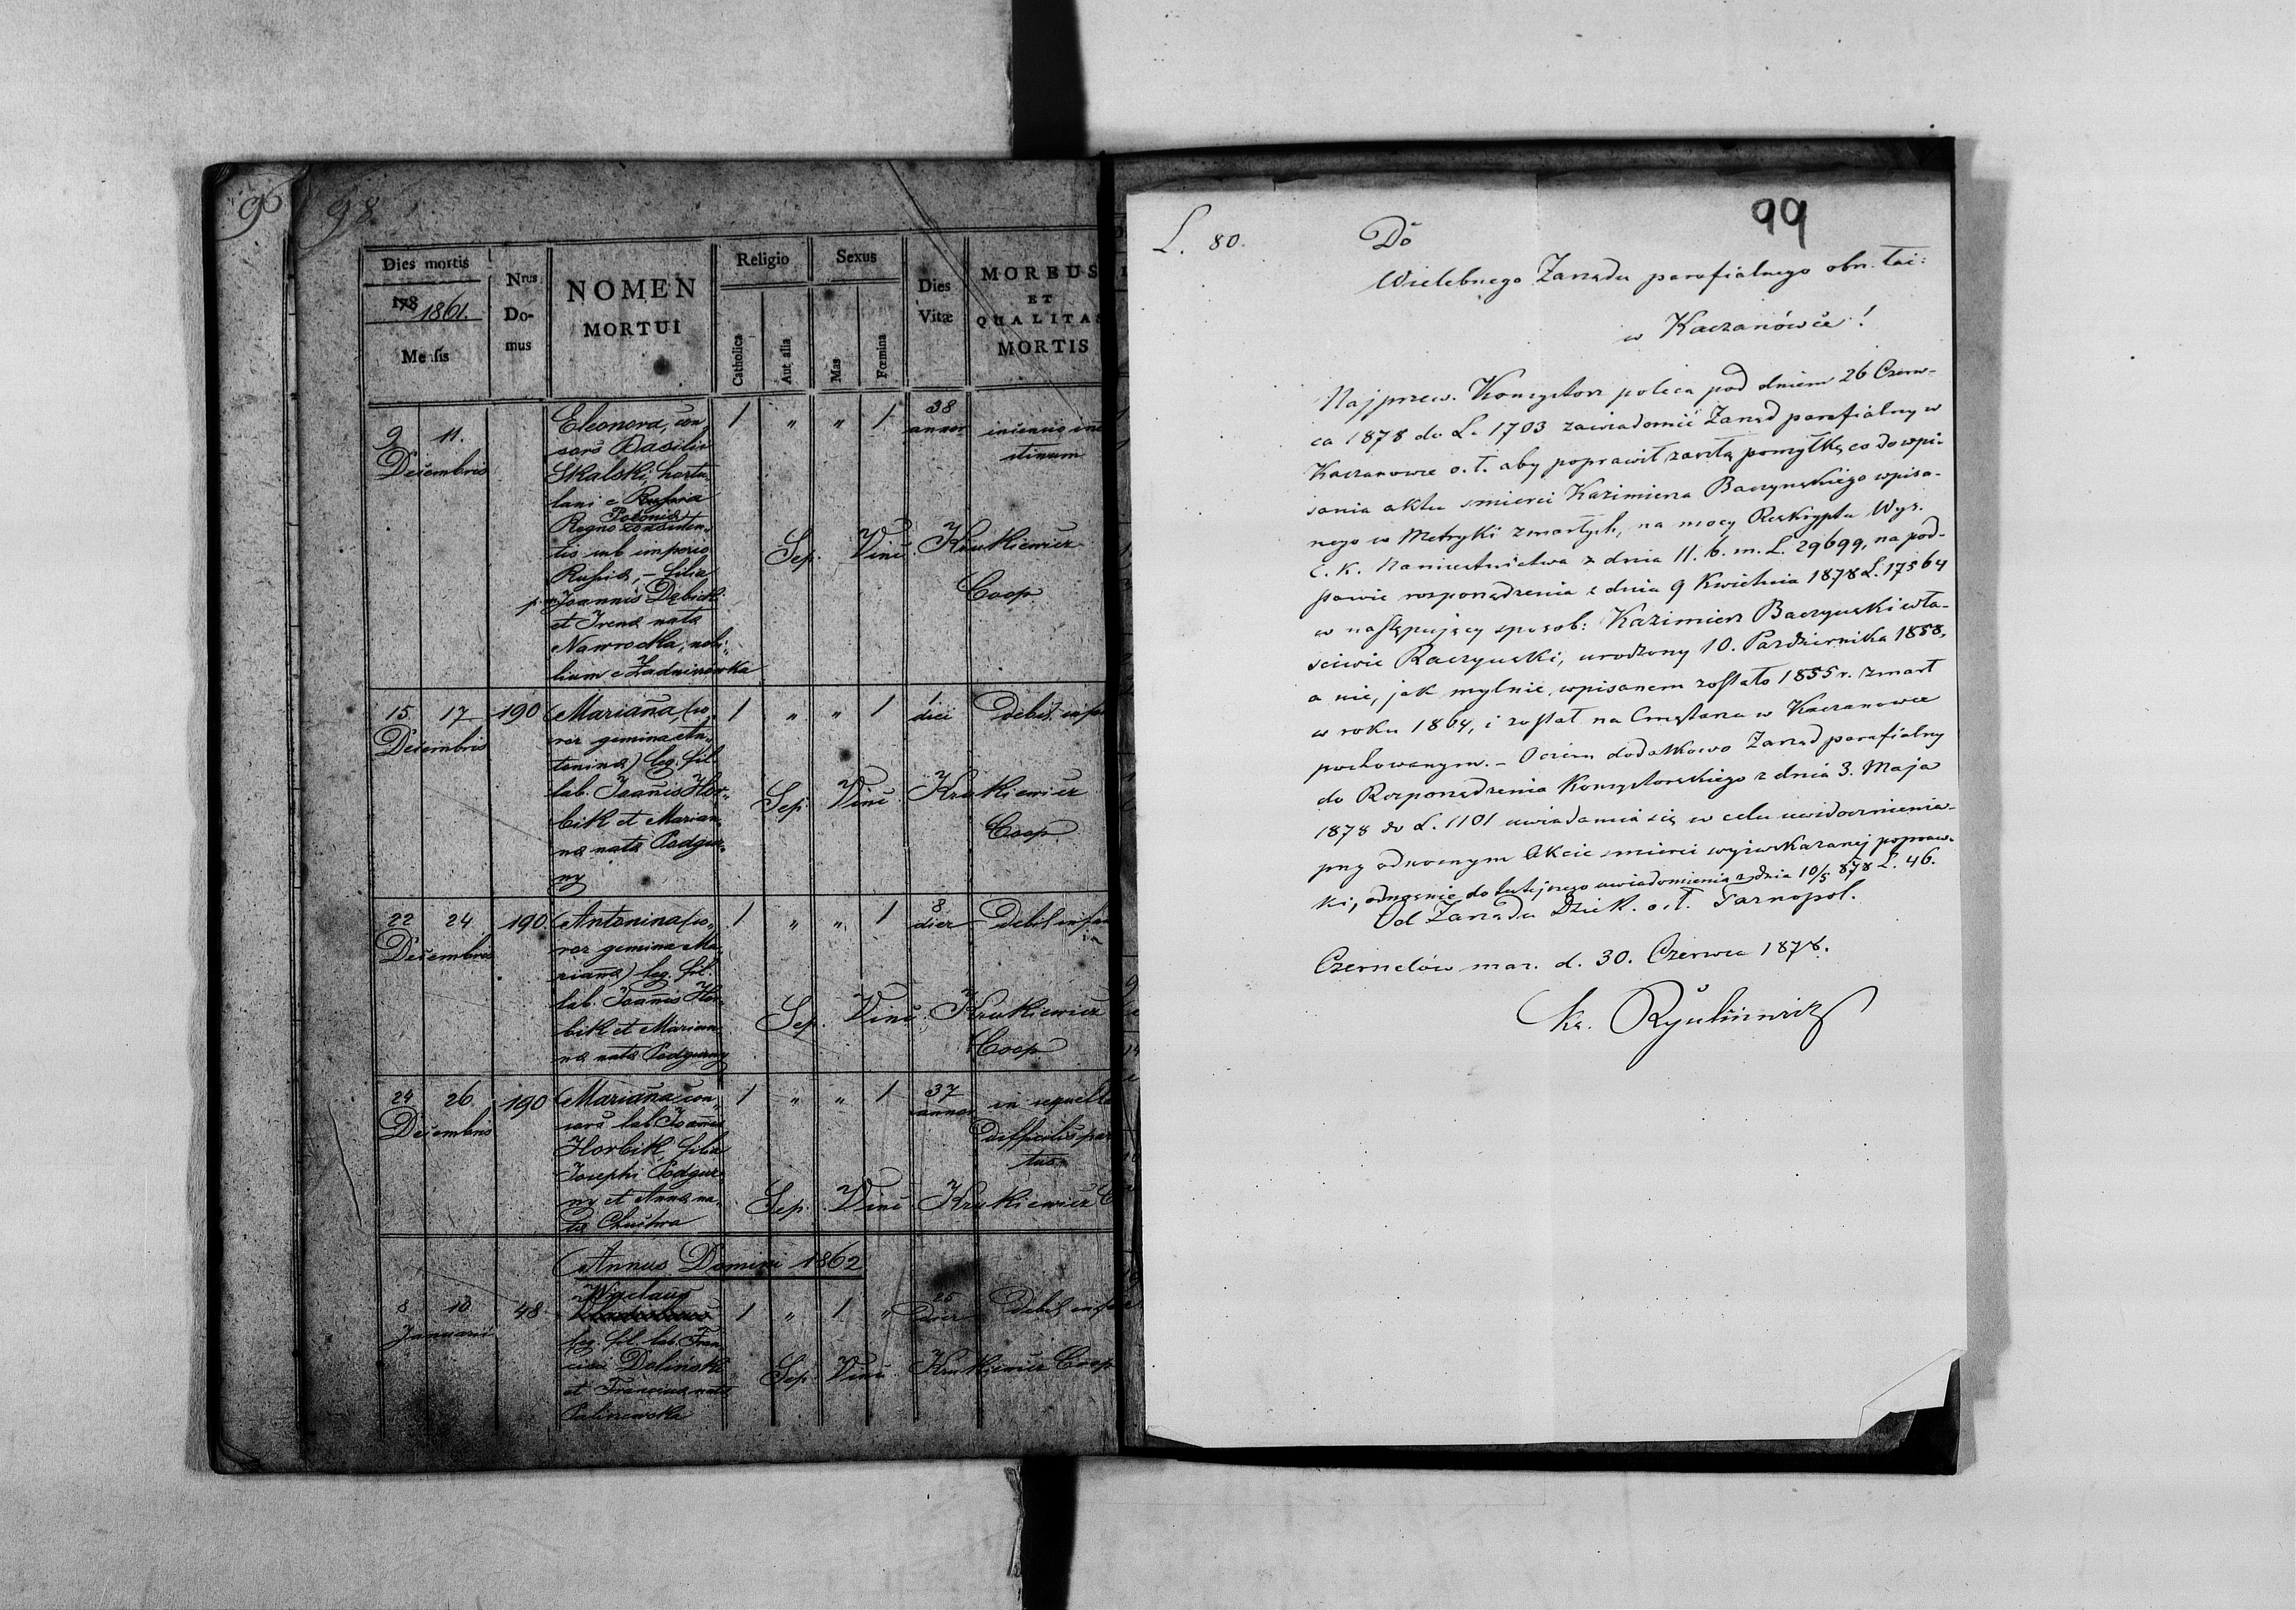 96
98
Dies mortis
178 1861.
Mensis
Nrus
Do-
mus
NOMEN
MORTUI
Religio
Catholica
Aut alia
Sexus
Mas
Fœmina
Dies
Vitæ
MORBUS
ET
QUALITAS
MORTIS
9 11.
Decembris
Eleonora, con„
sors Basilii
Skalski, hortu„
lani e Russia
Polonia
Regno consisten„
tis sub imperio
Russiæ, – filia
p.m. Joannis Dębicki
et Irenæ natæ
Nawrocka, nobi„
lium e Zadniszowka
1 „ „ 1
38
annor
Sep. Vinc. Krukiewicz
Coop.
15 17
Decembris
190
Marianna (so„
ror gemina An„
toninæ) leg. fil.
lab. Joannis Hor„
bik et Marian„
næ natæ Podgur„
ny
1 „ „ 1
1
diei
Debil.
Sep. Vinc. Krukiewicz
Coop.
22 24
Decembris
190
Antonina (so„
ror gemina Ma„
riannæ) leg. fil.
lab. Joannis Hor„
bik et Marian„
næ natæ Podgurny
1 „ „ 1
8
dier
Debil.
Sep. Vinc. Krukiewicz
Coop.
24 26
Decembris
190
Marianna con„
sors lab. Joannis
Horbik, filia
Josephi Podgur„
ny et Annæ na„
tæ
1 „ „ 1
37
annor
in sequela
difficilis par
tus
Sep. Vinc. Krukiewicz C
Annus Domini 1862
8 10
Januarii
48
leg. fil. lab. Fran„
cisci Doliński
et Franciscæ natæ
Paliszewska
1 „ 1 „
25
dier
Debil.
Sep. Vinc. Krukiewicz Coop
99
L. 80.
Do
Wielebnego Zarządu parafialnego obrz. łac:
w Kaczanówce!
Najprzew. Konsystorz poleca pod dniem 26 Czerw-
ca 1878 do L. 1703 zawiadomić Zarząd parafialny w
Kaczanowce o. ł. aby poprawił zaszłą pomyłkę co do wpi-
sania aktu smierci Kazimierza Baczynskiego wpisa-
nego w Metryki zmarłych, na mocy Reskryptu Wys.
C. K. Namiestnictwa z dnia 11. b. m. L. 29699, na pod-
stawie rozporządzenia z dnia 9 Kwietnia 1878 L. 17564
w następujący sposob: Kazimierz Baczynski wła-
sciwie Raczynski, urodzony 10. Pazdziernika 1858,
a nie, jak mylnie wpisanem zostało 1855 r. zmarł
w roku 1864, i został na Cmętarzu w Kaczanowce
pochowanym. – O czem dodatkowo Zarząd parafialny
do Rozporządzenia Konsystorskiego z dnia 3. Maja
1878 do L. 1101 uwiadamia się w celu uwidocznienia
przy odnosnym Akcie smierci wyżwskazanej popraw-
ki, odnosnie do tutejszego uwiadomienia z dnia 10/5 878 L. 46.
Od Zarządu Dziek. o. ł. Tarnopol.
Czernelów maz. d. 30. Czerwca 1878.